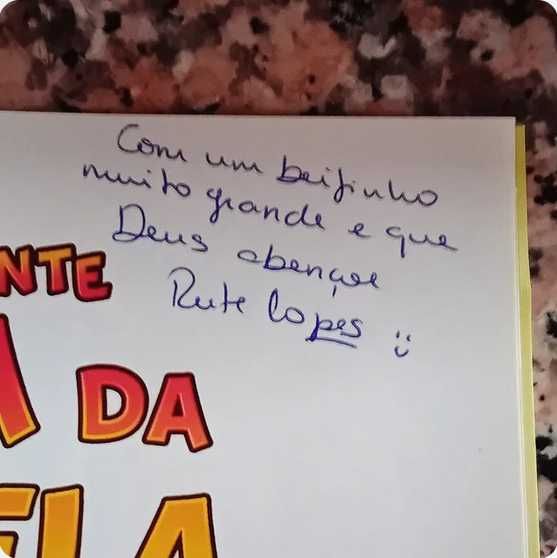 Com um beijinho
muito grande e que
Deus abençoe
Rute Lopes :)
NTE
DA
ELA